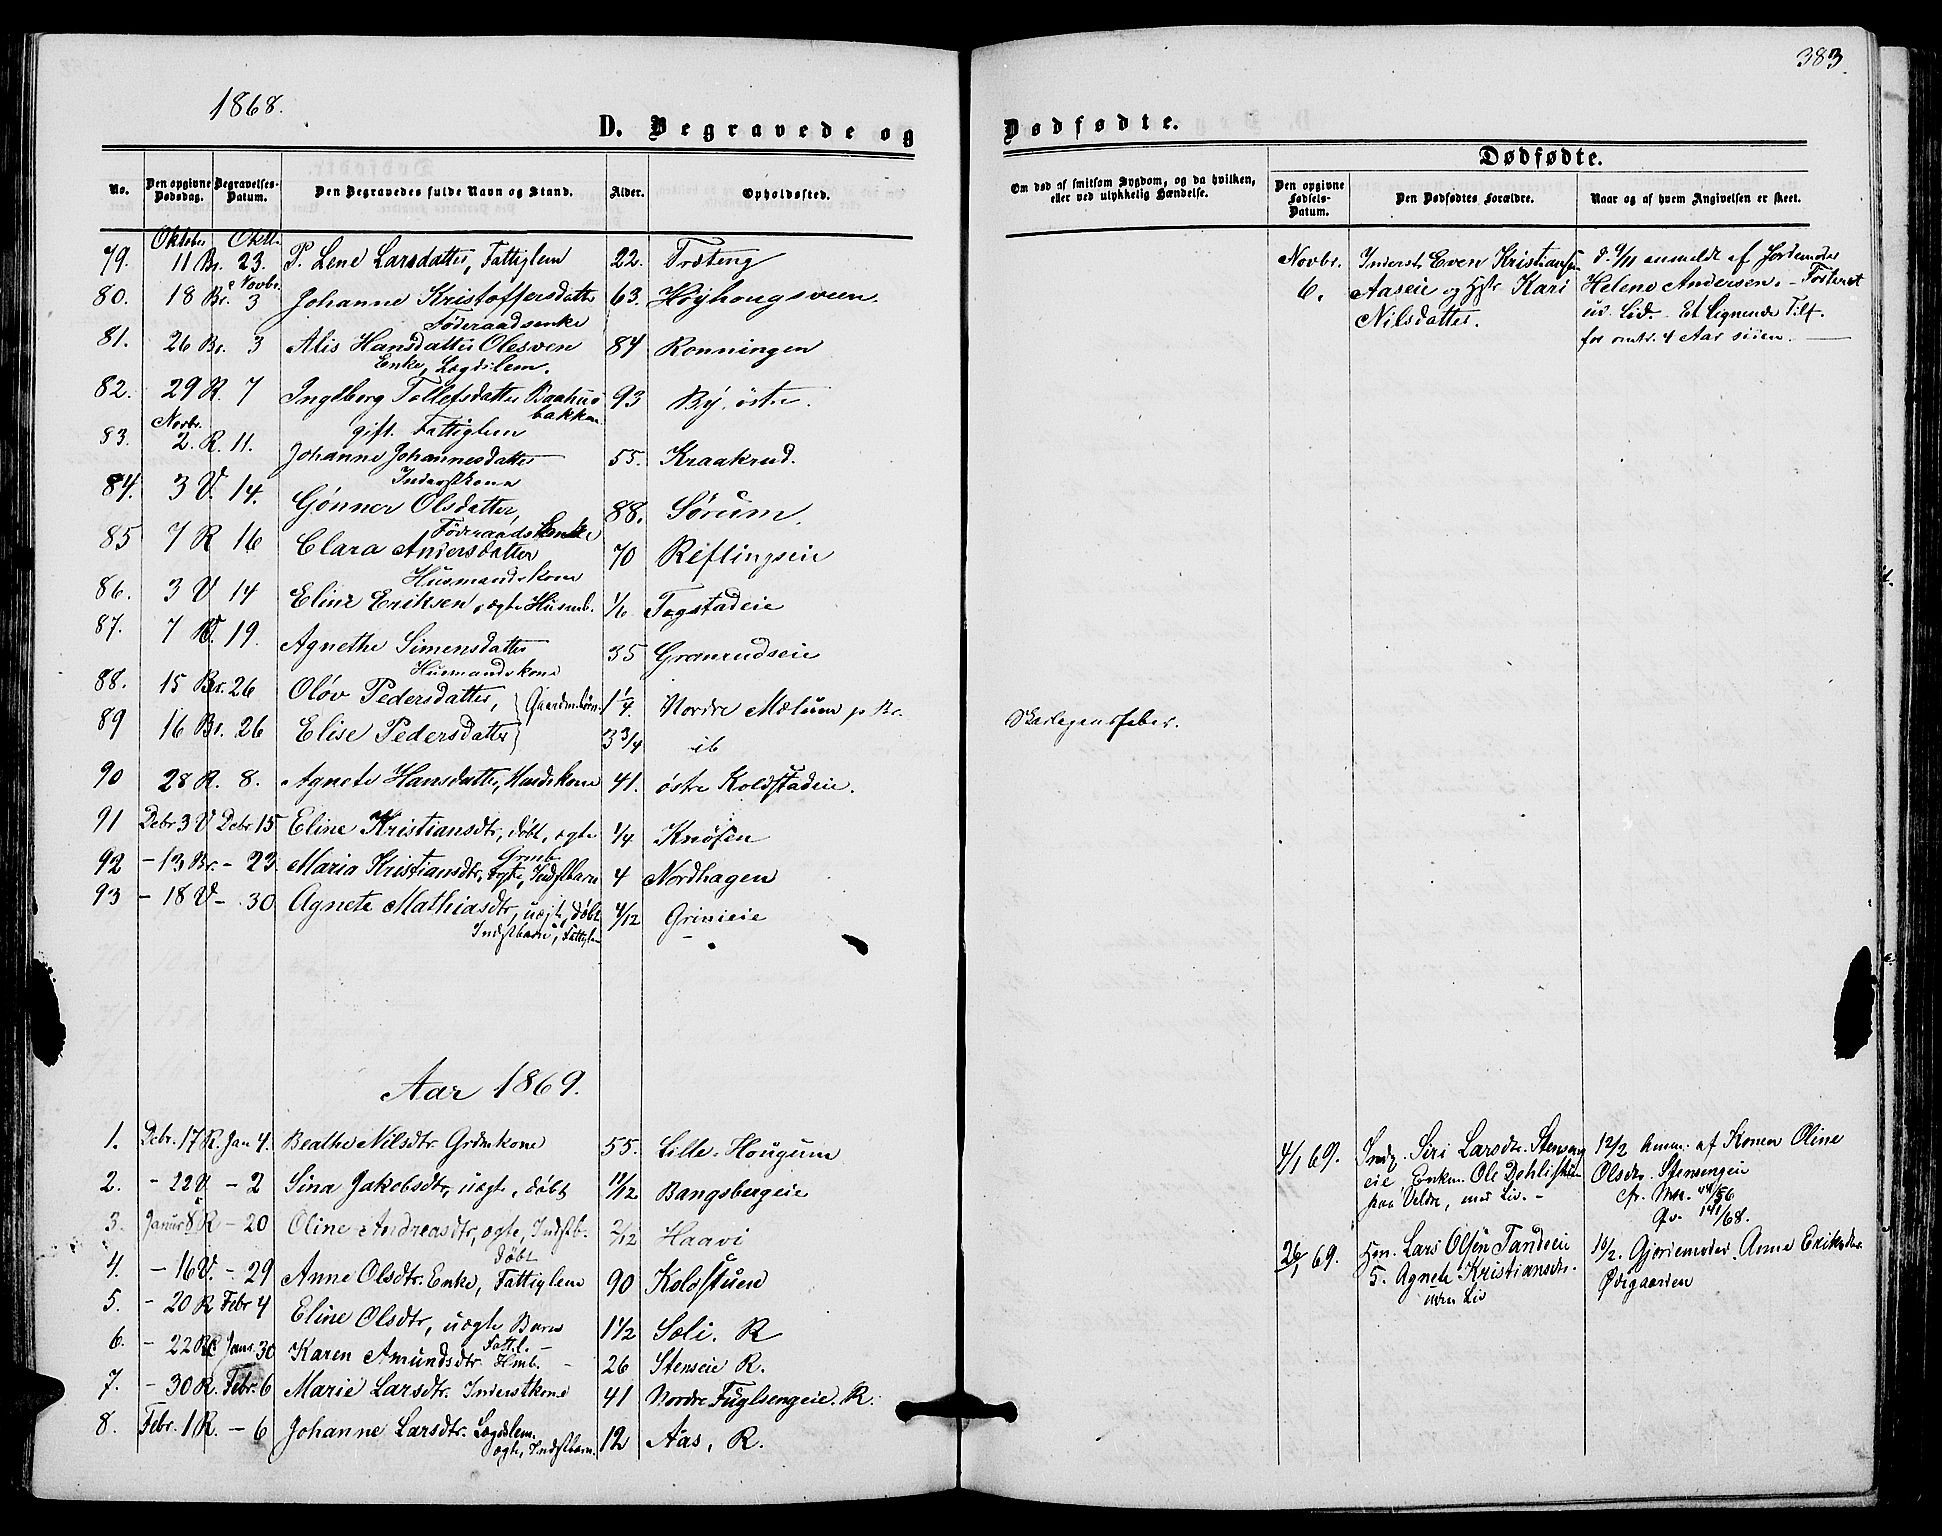 383.
1868.
D. Begravede og
Dødfødte.
Dødfødte.
No.
Den opgivne Dødsdag.
Begravelses-Datum.
Den Begravedes fulde Navn og Stand.
Alder.
Opholdssted.
Om død af smitsom Sygdom, og da hvilken, eller ved ulykkelig Hændelse.
Den opgivne Fødsels-Datum.
Den Dødfødtes Forældre.
Naar og af hvem Angivelsen er skeet.
Oktober Oktb.
79. 11 Br. 23. P. Lene Larsdatter, Fattiglem 22. Træteng
Novbr.
80. 18 Br. 3 Johanne Kristoffersdatter 63. Høyhougsveen.
Føderaadsenke
81. 26 Br. 3 Alis Hansdatter Olesven 84 Ronningen
Enke, Lægdslem.
82. 29 R. 7 Ingeborg Tollefsdatter 93 By, østre.
bakken
Novbr. gift. Fattiglem
83. 2. R. 11. Johanne Johannesdatter 55. Kraakrud.
Inderstkone
84. 3 V. 14. Gønner Olsdatter, 88. Sørum.
Føderaadsenke
85 7 R 16 Clara Andersdatter 70 Reflingseie
Husmandskone
86. 3 V 14 Eline Eriksen, ægte Husmb. Togstadeie
87. 7 V. 19. Agnethe Simensdatter 35 Granrudseie
Husmandskone
88. 15 Br. 26 Oløv Pedersdatter, Gaardmbørn. 1 1/4 Nordre Mælum p. Br.
89 16 Br. 26 Elise Pedersdatter 3 3/4 ib
Skarlagensfeber.
90 28 R. 8. Agnete Hansdatter, 41. østre Koldstadeie.
91 Debr 3 V Debr 15 Eline Kristiansdtr, døbt, ægte 1/4 Knøsen
Grmb.
92 - 13 Br. - 23. Maria Kristiansdtr, ægte, Indstbarn 4 Nordhagen
93 - 18 V - 30 Agnete Mathiasdtr, uægte, døbt 4/12 Grinieie
Indstbarn, Fattiglem
Novbr. 6.
Inderst. Even Kristiansen
Aaseie og Hstr Kari
Nilsdatter.
d. 9/11 anmeldt af Jordemoder
Helene Andersen. - Fosteret
uv. Liv. Et Lignende Tilf.
for omtr. 4 Aar siden.
Aar 1869.
1. Debr. 17 R. Jan 4. Beathe Nilsdtr Grdmkone 55. Lille-Hougum
2. - 22 V - 2 Sina Jakobsdtr, uægte, døbt 11/12 Bangsbergeie
3. Januar 8 R - 20 Oline Andreasdtr, ægte, Indstb. 2/12 Haavi
døbt
4. - 16 V. - 29 Anne Olsdtr. Enke, Fattiglem 90 Koldstuen
5. - 20 R Febr 4 Eline Olsdtr, uægte Barn 1 1/2 Sæli. R
Fattl. -
6. - 22 R Janr. 30 Karen Amundsdtr. Hmb. - 26 Stenseie R.
7. - 30 R. Febr. 6 Marie Larsdtr. Inderstkone 41 Nordre Fuglsengeie. R.
8. Febr. 1 R. - 6 Johanne Larsdtr. Lægdslem. 12 Aas, R.
ægte, Indstbarn.
4/1 69.
Ind. Siri Larsdtr. Stenseng
eie, Enkem. Ole Dehliskin
paa Veldre, uden Liv. -
12/2 Anm. af Konen Oline
Olsdtr. Stensengeie
26/1 69.
Hm. Lars Olsen Tandseie
5. Agnete Kristiansdr.
uden Liv
10/2. Gjordemoder Anne Eriksdtr.
Ødegaarden